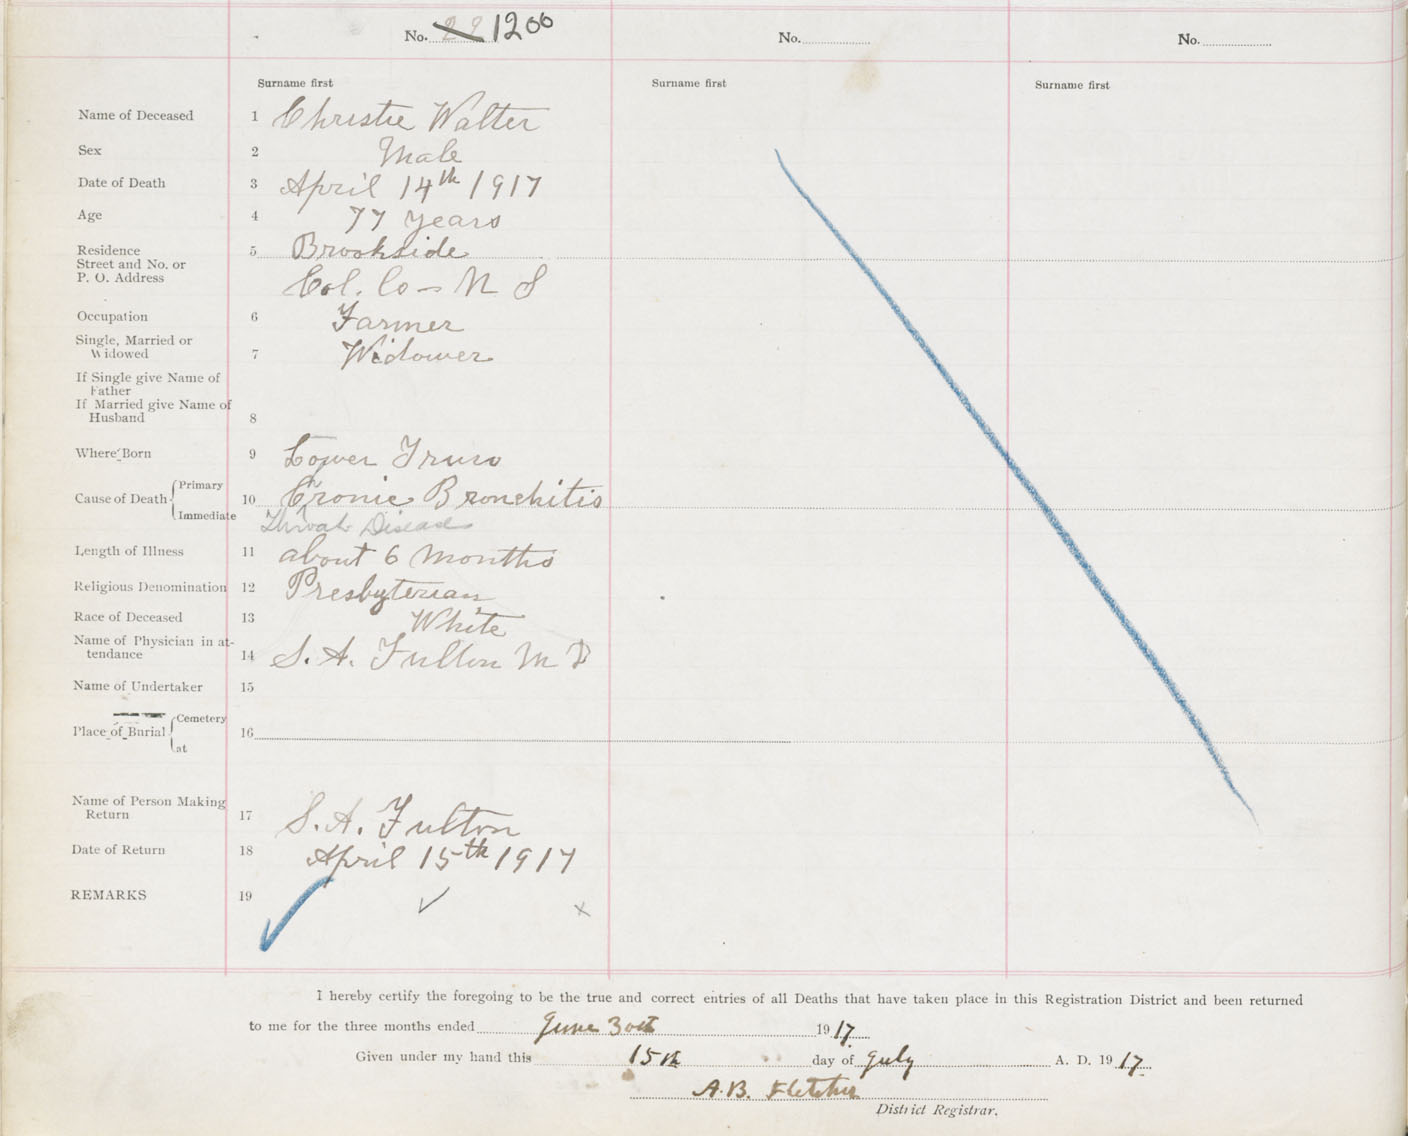 No. 22 1200 No. No.
Surname first Surname first Surname first
Name of Deceased 1 Christie Walter
Sex 2 Male
Date of Death 3 April 14th 1917
Age 4 77 years
Residence 5 Brookside
Street and No. or
P. O. Address Col. Co - N S
Occupation 6 Farmer
Single, Married or
Widowed 7 Widower
If Single give Name of
Father
If Married give Name of
Husband 8
Where Born 9 Lower Truro
Cause of Death Primary 10 Chronic Bronchitis
Immediate Throat Disease
Length of Illness 11 about 6 months
Religious Denomination 12 Presbyterian
Race of Deceased 13 White
Name of Physician in at-
tendance 14 S. A. Fulton M D
Name of Undertaker 15
Place of Burial Cemetery 16
at
Name of Person Making
Return 17 S. A. Fulton
Date of Return 18 April 15th 1917
REMARKS 19
I hereby certify the foregoing to be the true and correct entries of all Deaths that have taken place in this Registration District and been returned
to me for the three months ended June 30th 1917.
Given under my hand this 15th day of July A. D. 1917.
A. B. Fletcher
District Registrar.